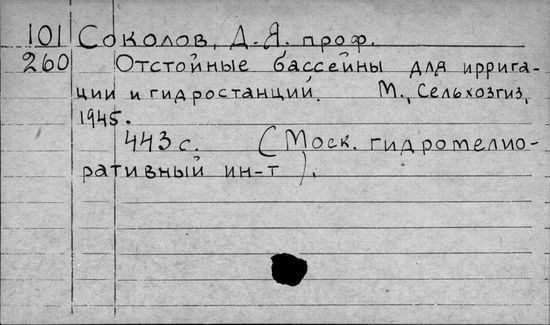 101 Соколов, Д.Я. проф.
260 Отстойные бассейны для иррига-
ции и гидростанций. М., Сельхозгиз,
1945.
443 с. (Моск. гидромелио-
ративный ин-т).